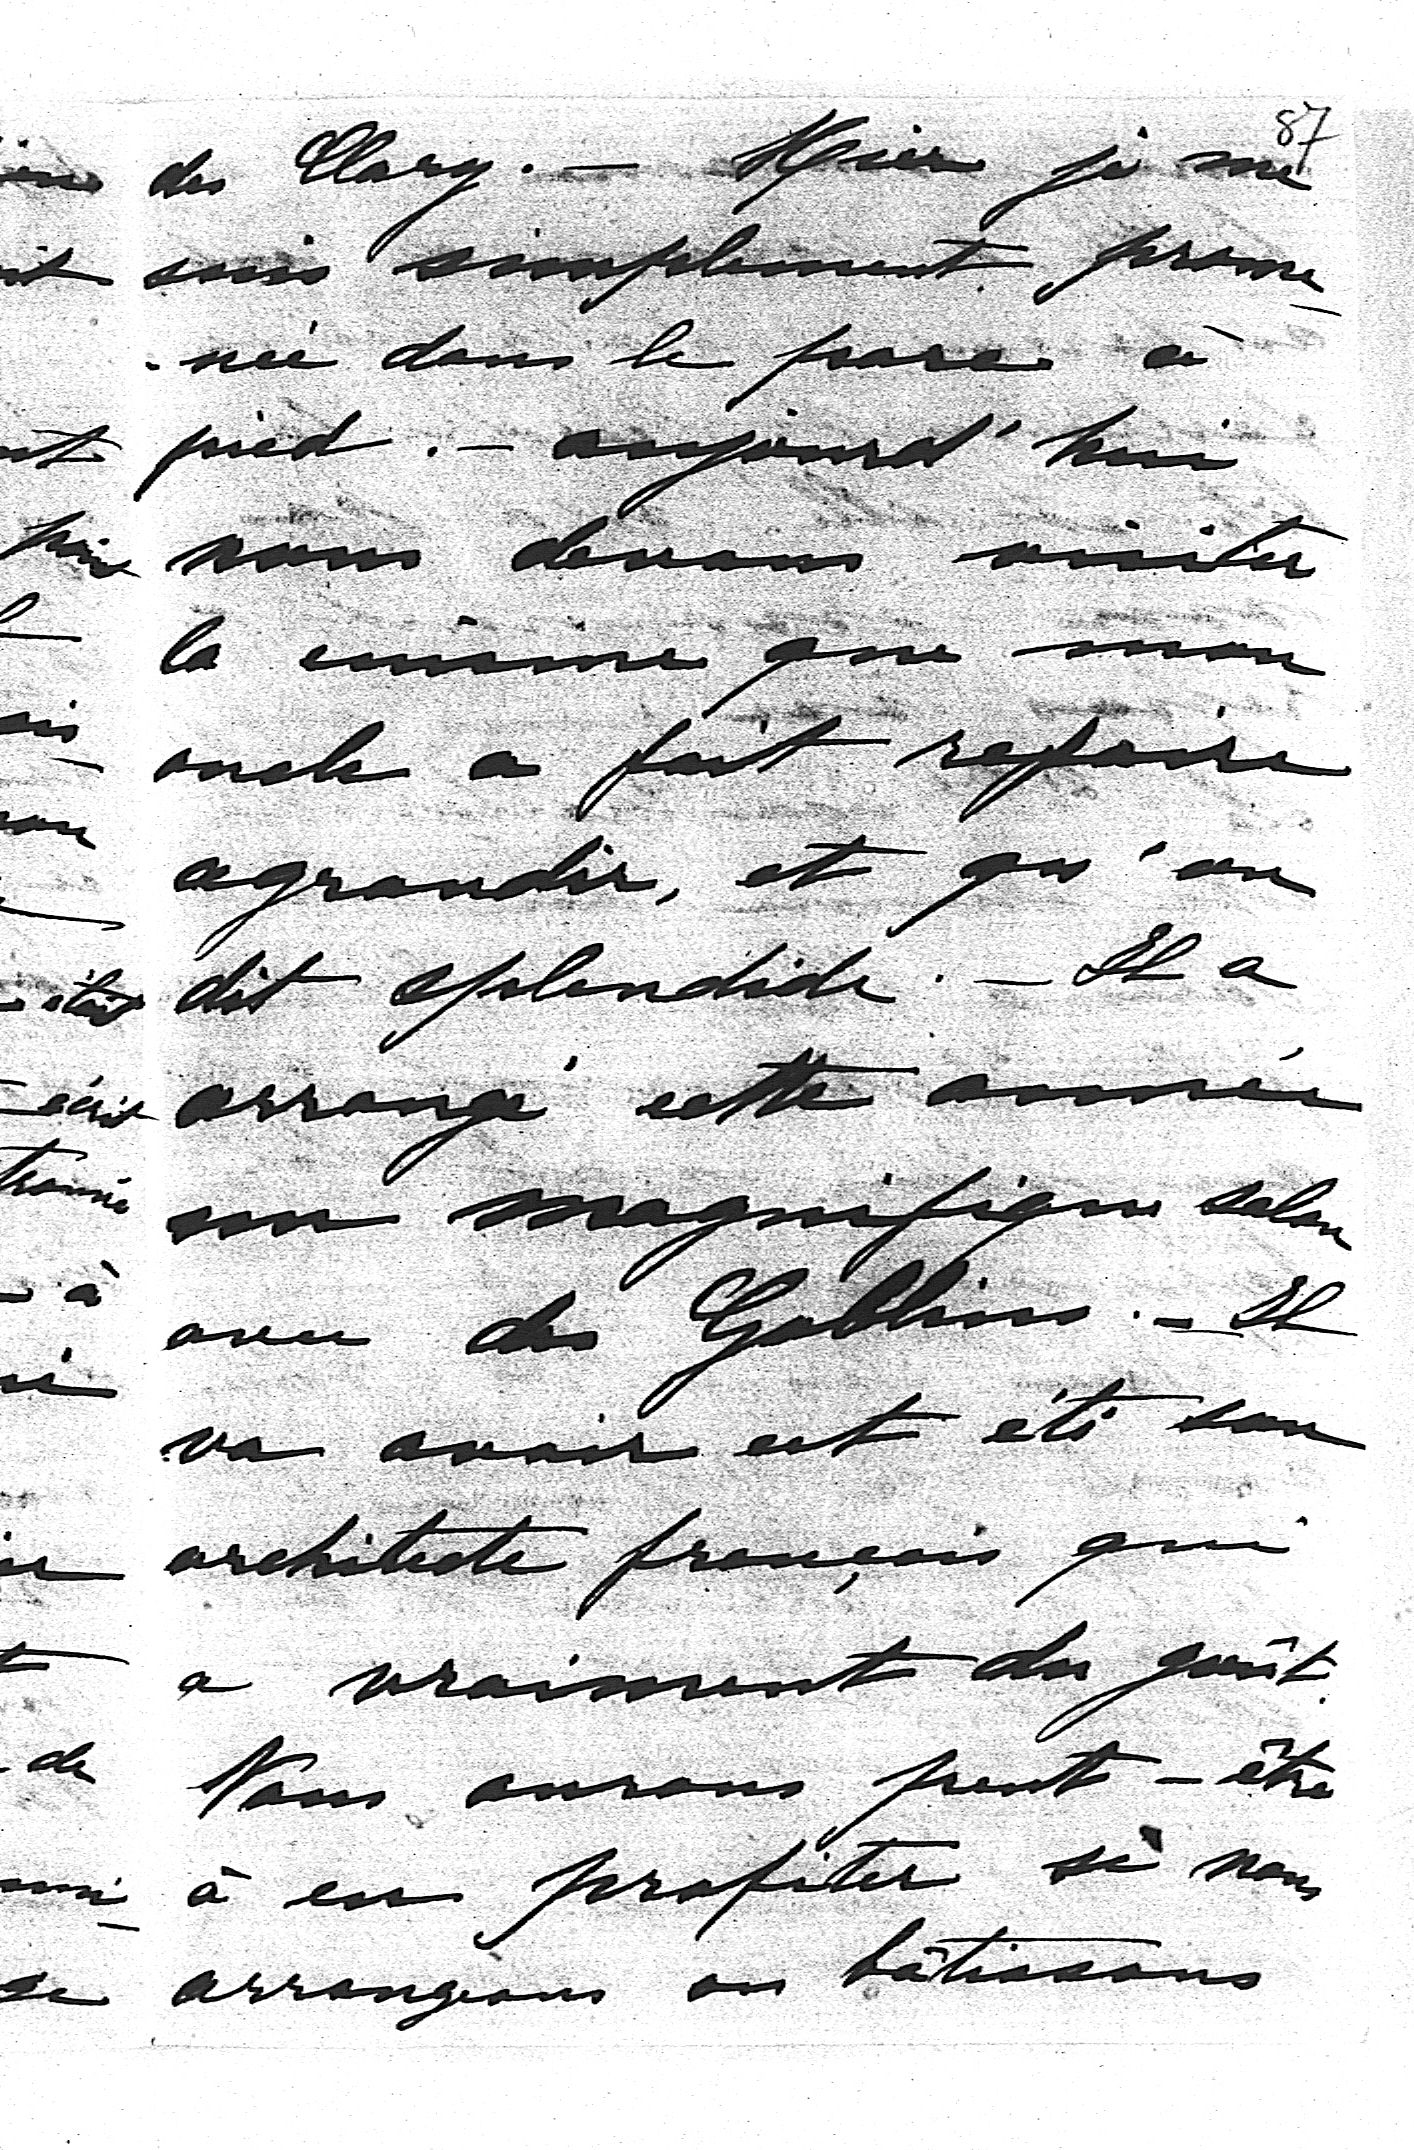 87
des Clary. — Hier je me
suis simplement prome-
-née dans le parc à
pied. — aujourd'hui
nous devons visiter
la cuisine que mon
oncle a fait refaire
agrandir, et qu'on
dit splendide. — Il a
arrangé cette année
un magnifique salon
avec des Goblins. — Il
va avoir cet été son
architecte français qui
a vraiment du goût.
Nous aurons peut-être
à en profiter si nous
arrangeons ou bâtissons